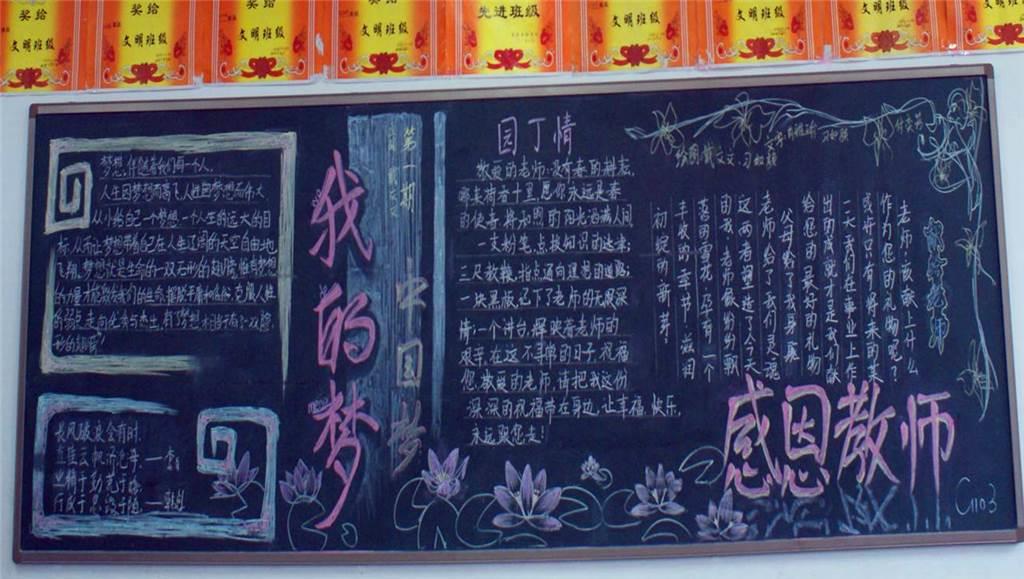 奖给
文明班级
文明班级
奖给
文明班级
先进班级
文明班级
文明班级
文明班级
文明班级
梦想,伴随着我们每一个人,
人生因梦想而高飞人性因梦想而伟大
从小给自己一个梦想,一个人生的远大的目
标,从而让梦想带着自己在人生辽阔的天空自由地
飞翔。梦想就是生命的一双无形的翅膀
的力量才能
形的翅膀!
长风破浪会有时,
直挂云帆济沧海。——李白
业精于勤荒于嬉,
行成于思毁于随。——韩愈
我的梦
中国梦
第一期
园丁情
敬爱的老师:没有春的耕耘,
哪来荷香十里,愿您永远是春
的使者,将和煦的阳光洒满人间
一支粉笔,点拨知识的迷津;
三尺教鞭,指点通向理想的道路;
一块黑板,记下了老师的无限深
情;一个讲台,辉映着老师的
艰辛在这不寻常的日子祝福
您,敬爱的老师,请把我这份
深深的祝福带在身边,让幸福,快乐,
永远跟您走!
老师,该献上什么
作为您的礼物呢?
或许只有将来的某
一天我们在事业上作
出的成就才是我们献
给您的最好的礼物
父母给了我身躯
老师给了我们灵魂
这两者塑造了今天
的我,老师像纷纷飘
落的雪花,孕育一个
丰收的季节,滋润
初绽的新芽。
感恩教师
C1103